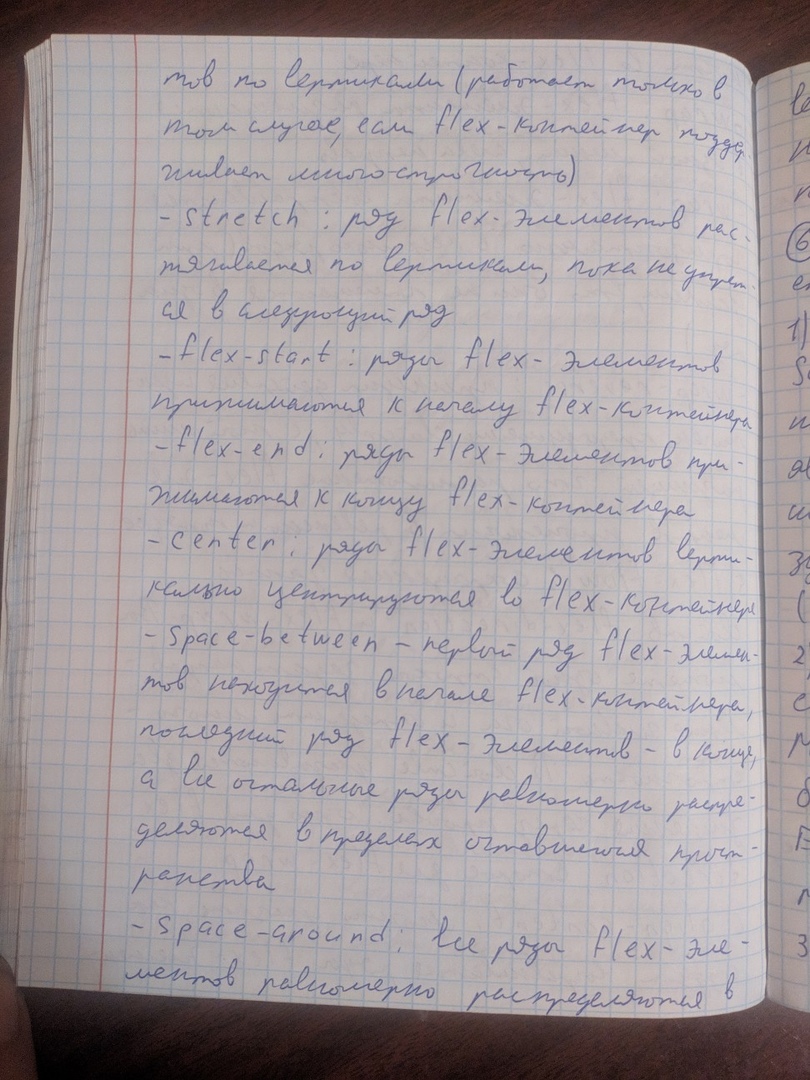 тов по вертикали (работает только в
том случае, если flex-контейнер поддер-
живает много-строчность)
- stretch : ряд flex-элементов рас-
тягивается по вертикали, пока не упрет-
ся в следующий ряд
- flex-start : ряды flex- элементов
прижимаются к началу flex-контейнера
- flex-end : ряды flex- элементов при-
жимаются к концу flex-контейнера
- center : ряды flex-элементов верти-
кально центрируются во flex-контейнере
- space-between - первый ряд flex-элемен-
тов находится в начале flex-контейнера,
последний ряд flex- элементов - в конце,
а все остальные ряды равномерно распре-
деляются в пределах оставшегося прост-
ранства
- space-around : все ряды flex-эле-
ментов равномерно распределяются в
6
1)
2)